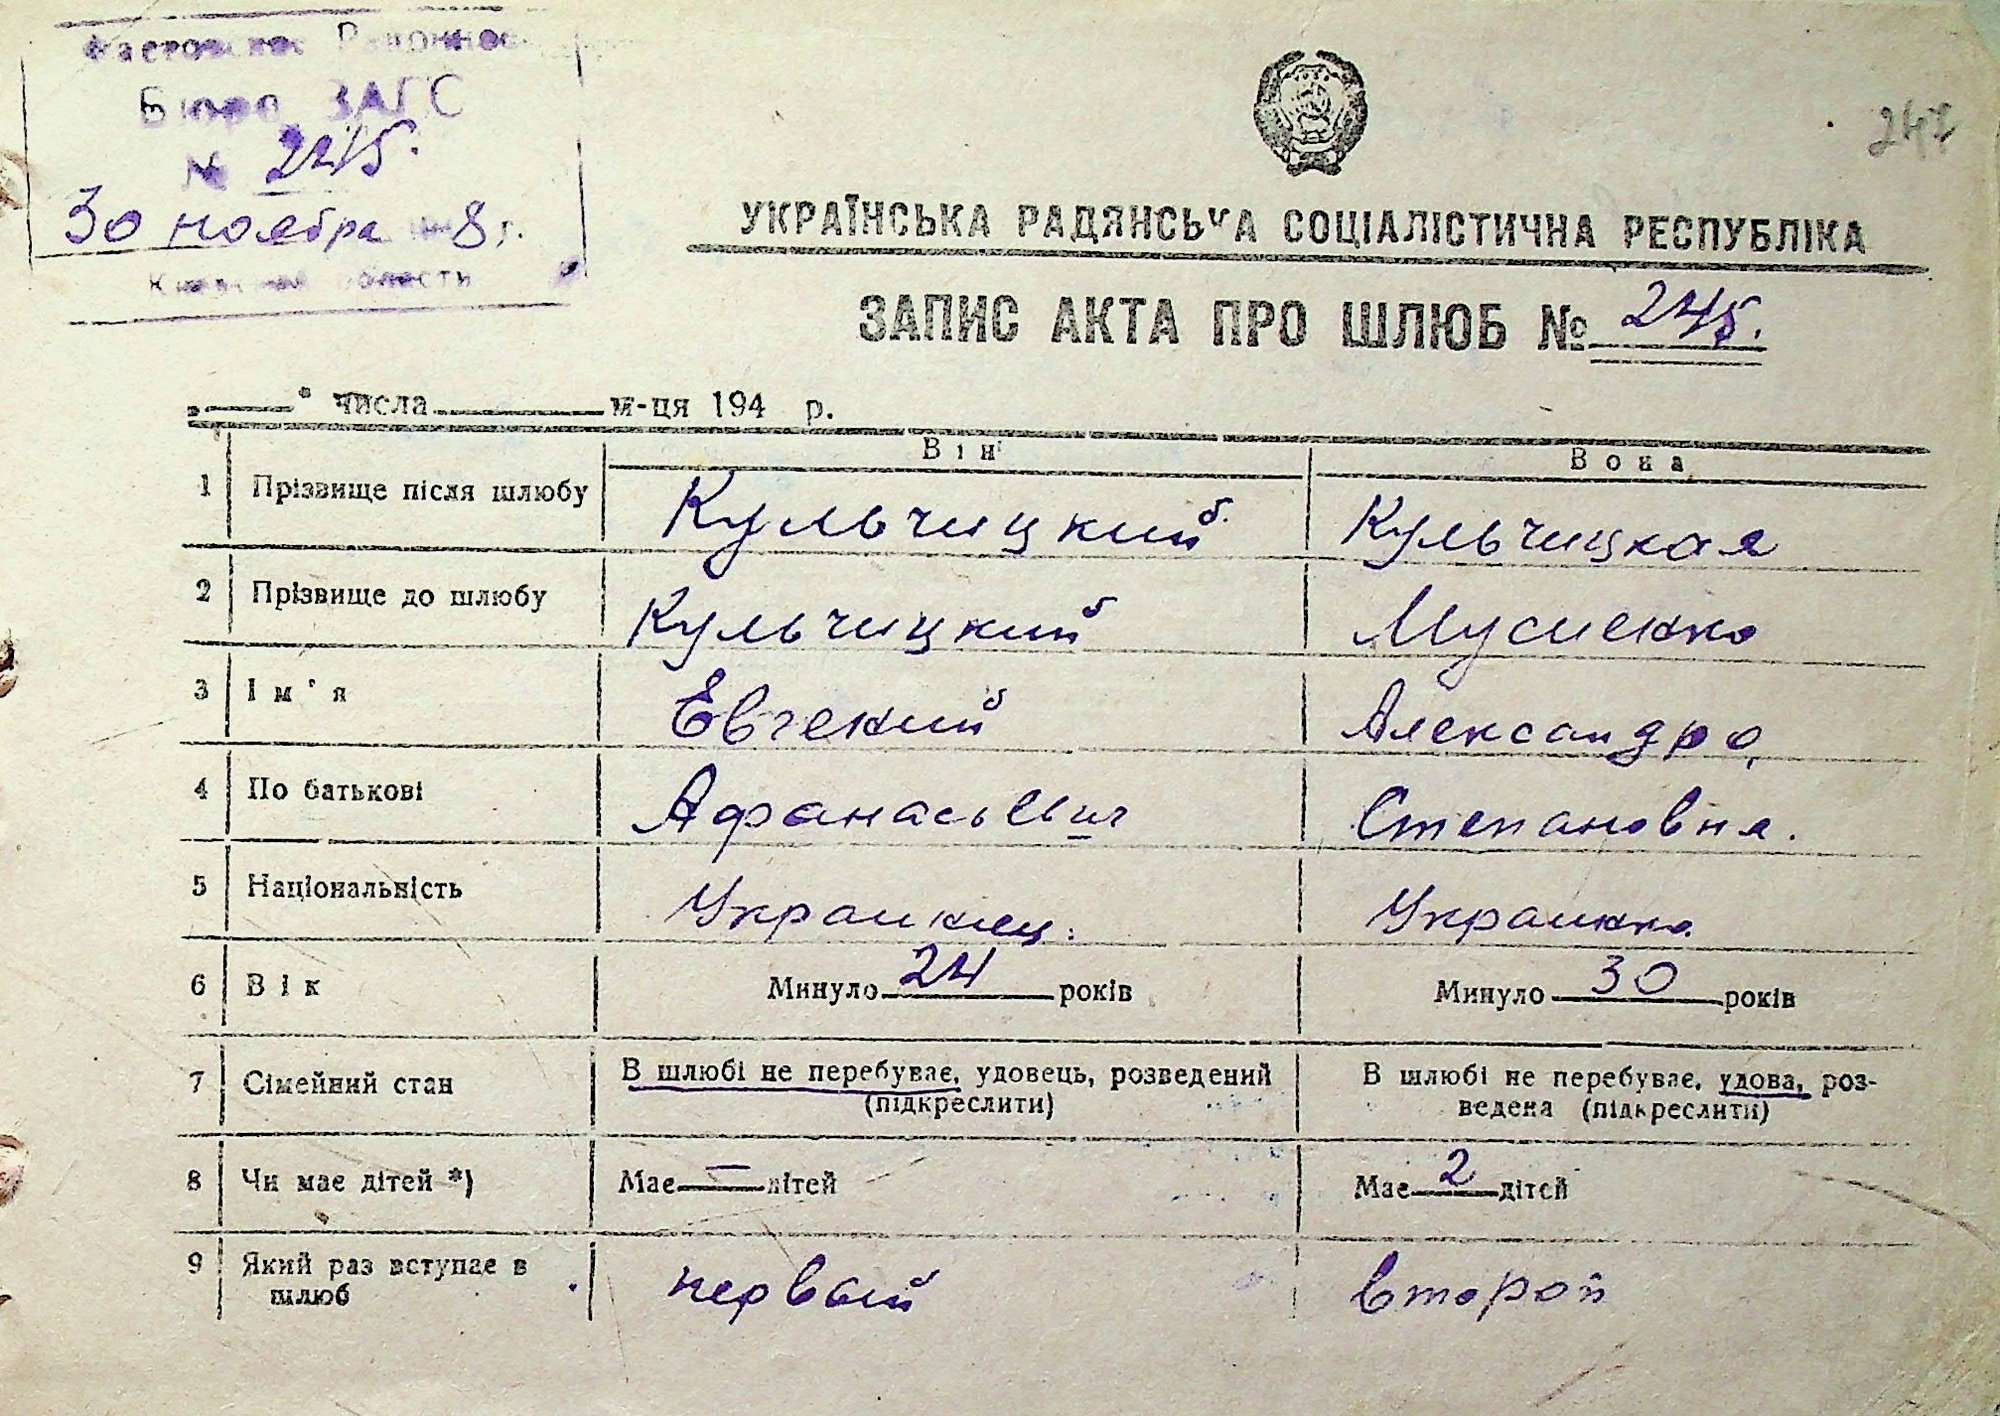 Фастовское Районное
Бюро ЗАГС
№ 245.
30 ноября 8 г.
Киевской области
247
УКРАЇНСЬКА РАДЯНСЬКА СОЦІАЛІСТИЧНА РЕСПУБЛІКА
ЗАПИС АКТА ПРО ШЛЮБ № 245.
„ “ числа м-ця 194 р.
Він Вона
1 Прізвище після шлюбу Кульчицкий Кульчицкая
2 Прізвище до шлюбу Кульчицкий Мусиенко
3 Ім'я Евгений Александра
4 По батькові Афанасьевич Степановна.
5 Національність Украинец. Украинка
6 Вік Минуло 24 років Минуло 30 років
7 Сімейний стан В шлюбі не перебуває, удовець, розведений (підкреслити) В шлюбі не перебуває, удова, роз-
ведена (підкреслити)
8 Чи має дітей *) Має — дітей Має 2 дітей
9 Який раз вступає в
шлюб первый второй